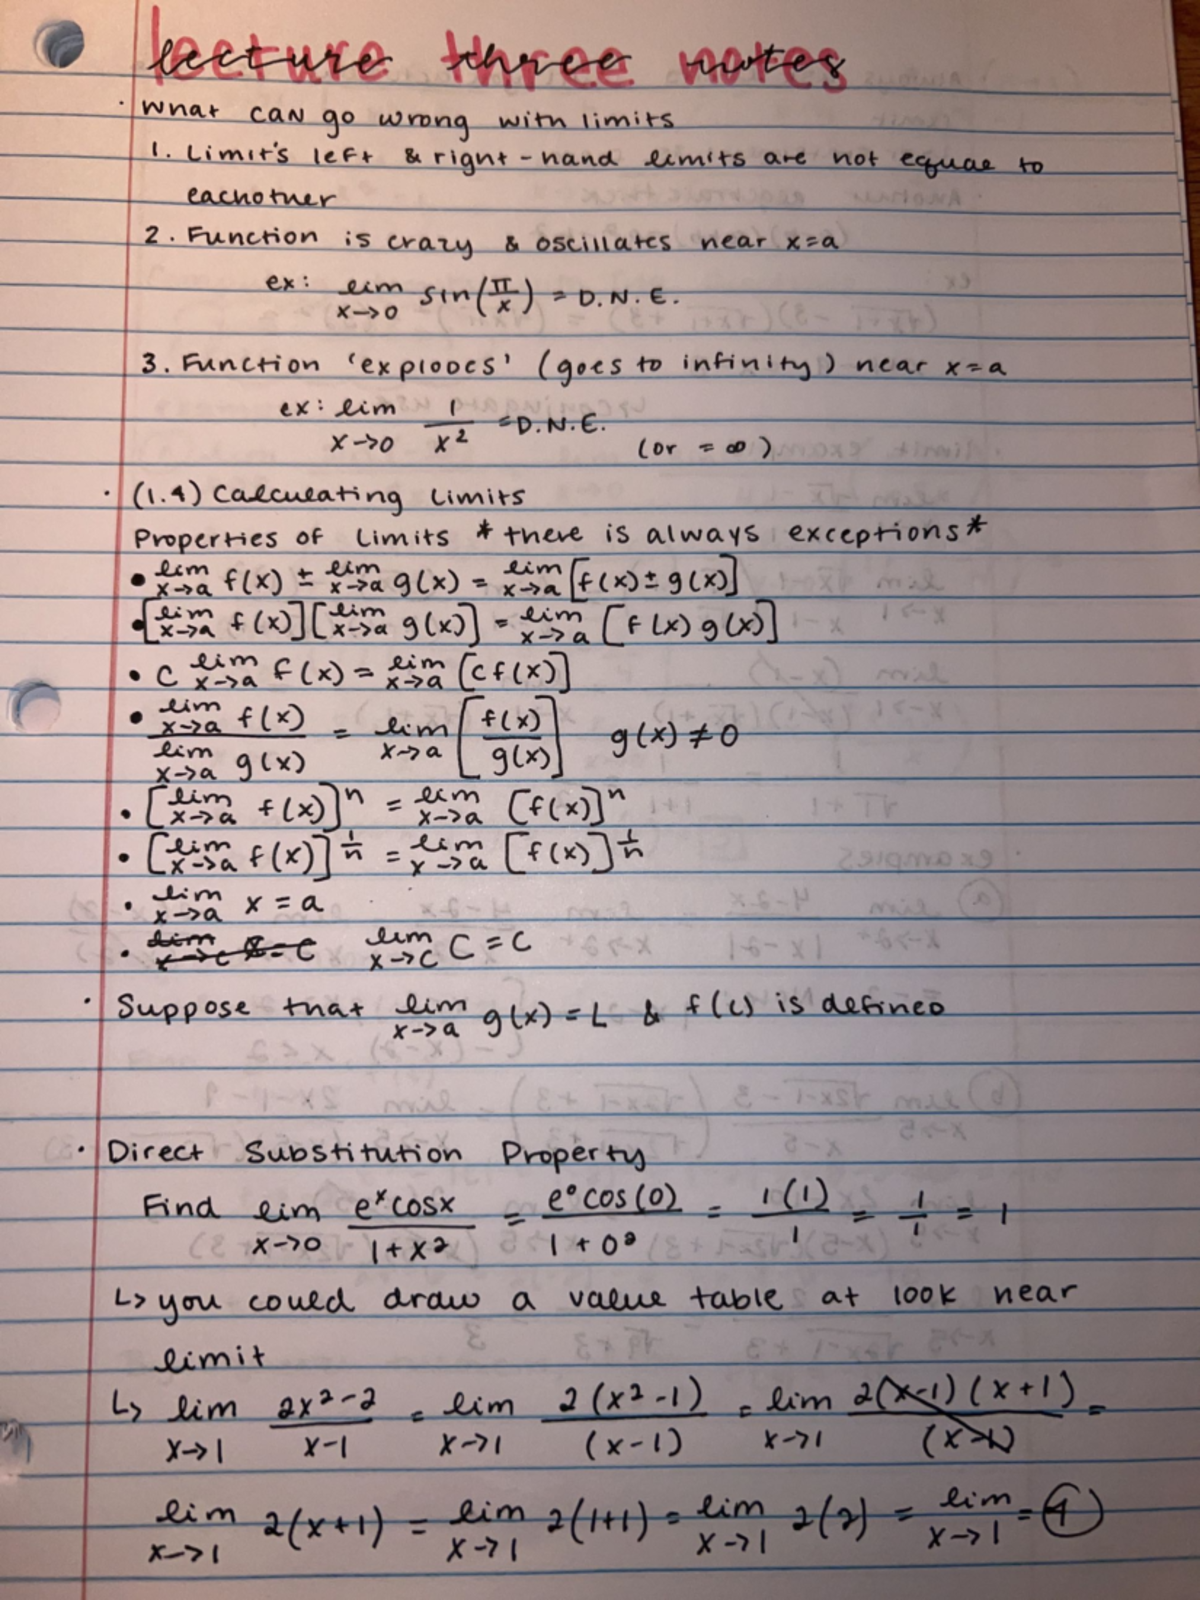 lecture three notes
· What can go wrong with limits
1. Limit's left & right-hand limits are not equal to
eachother
2. Function is crazy & oscillates near x=a
ex: lim x→0 sin(π/x) = D.N.E.
3. Function 'explodes' (goes to infinity) near x=a
ex: lim x→0 1/x² = D.N.E. (or = ∞)
· (1.4) Calculating Limits
Properties of Limits *there is always exceptions*
• lim x→a f(x) ± lim x→a g(x) = lim x→a [f(x) ± g(x)]
• [lim x→a f(x)][lim x→a g(x)] = lim x→a [f(x) g(x)]
• c lim x→a f(x) = lim x→a [cf(x)]
• lim x→a f(x) / lim x→a g(x) = lim x→a [f(x)/g(x)] g(x) ≠ 0
• [lim x→a f(x)]ⁿ = lim x→a [f(x)]ⁿ
• [lim x→a f(x)]^(1/n) = lim x→a [f(x)]^(1/n)
• lim x→a x = a
• lim x→c C = C
· Suppose that lim x→a g(x) = L & f(c) is defined
· Direct Substitution Property
Find lim x→0 (eˣcosx)/(1+x²) = (e⁰cos(0))/(1+0²) = 1(1)/1 = 1/1 = 1
↳ you could draw a value table at look near
limit
↳ lim x→1 (2x²-2)/(x-1) = lim x→1 2(x²-1)/(x-1) = lim x→1 2(x-1)(x+1)/(x-1) =
lim x→1 2(x+1) = lim x→1 2(1+1) = lim x→1 2(2) = lim x→1 = 4